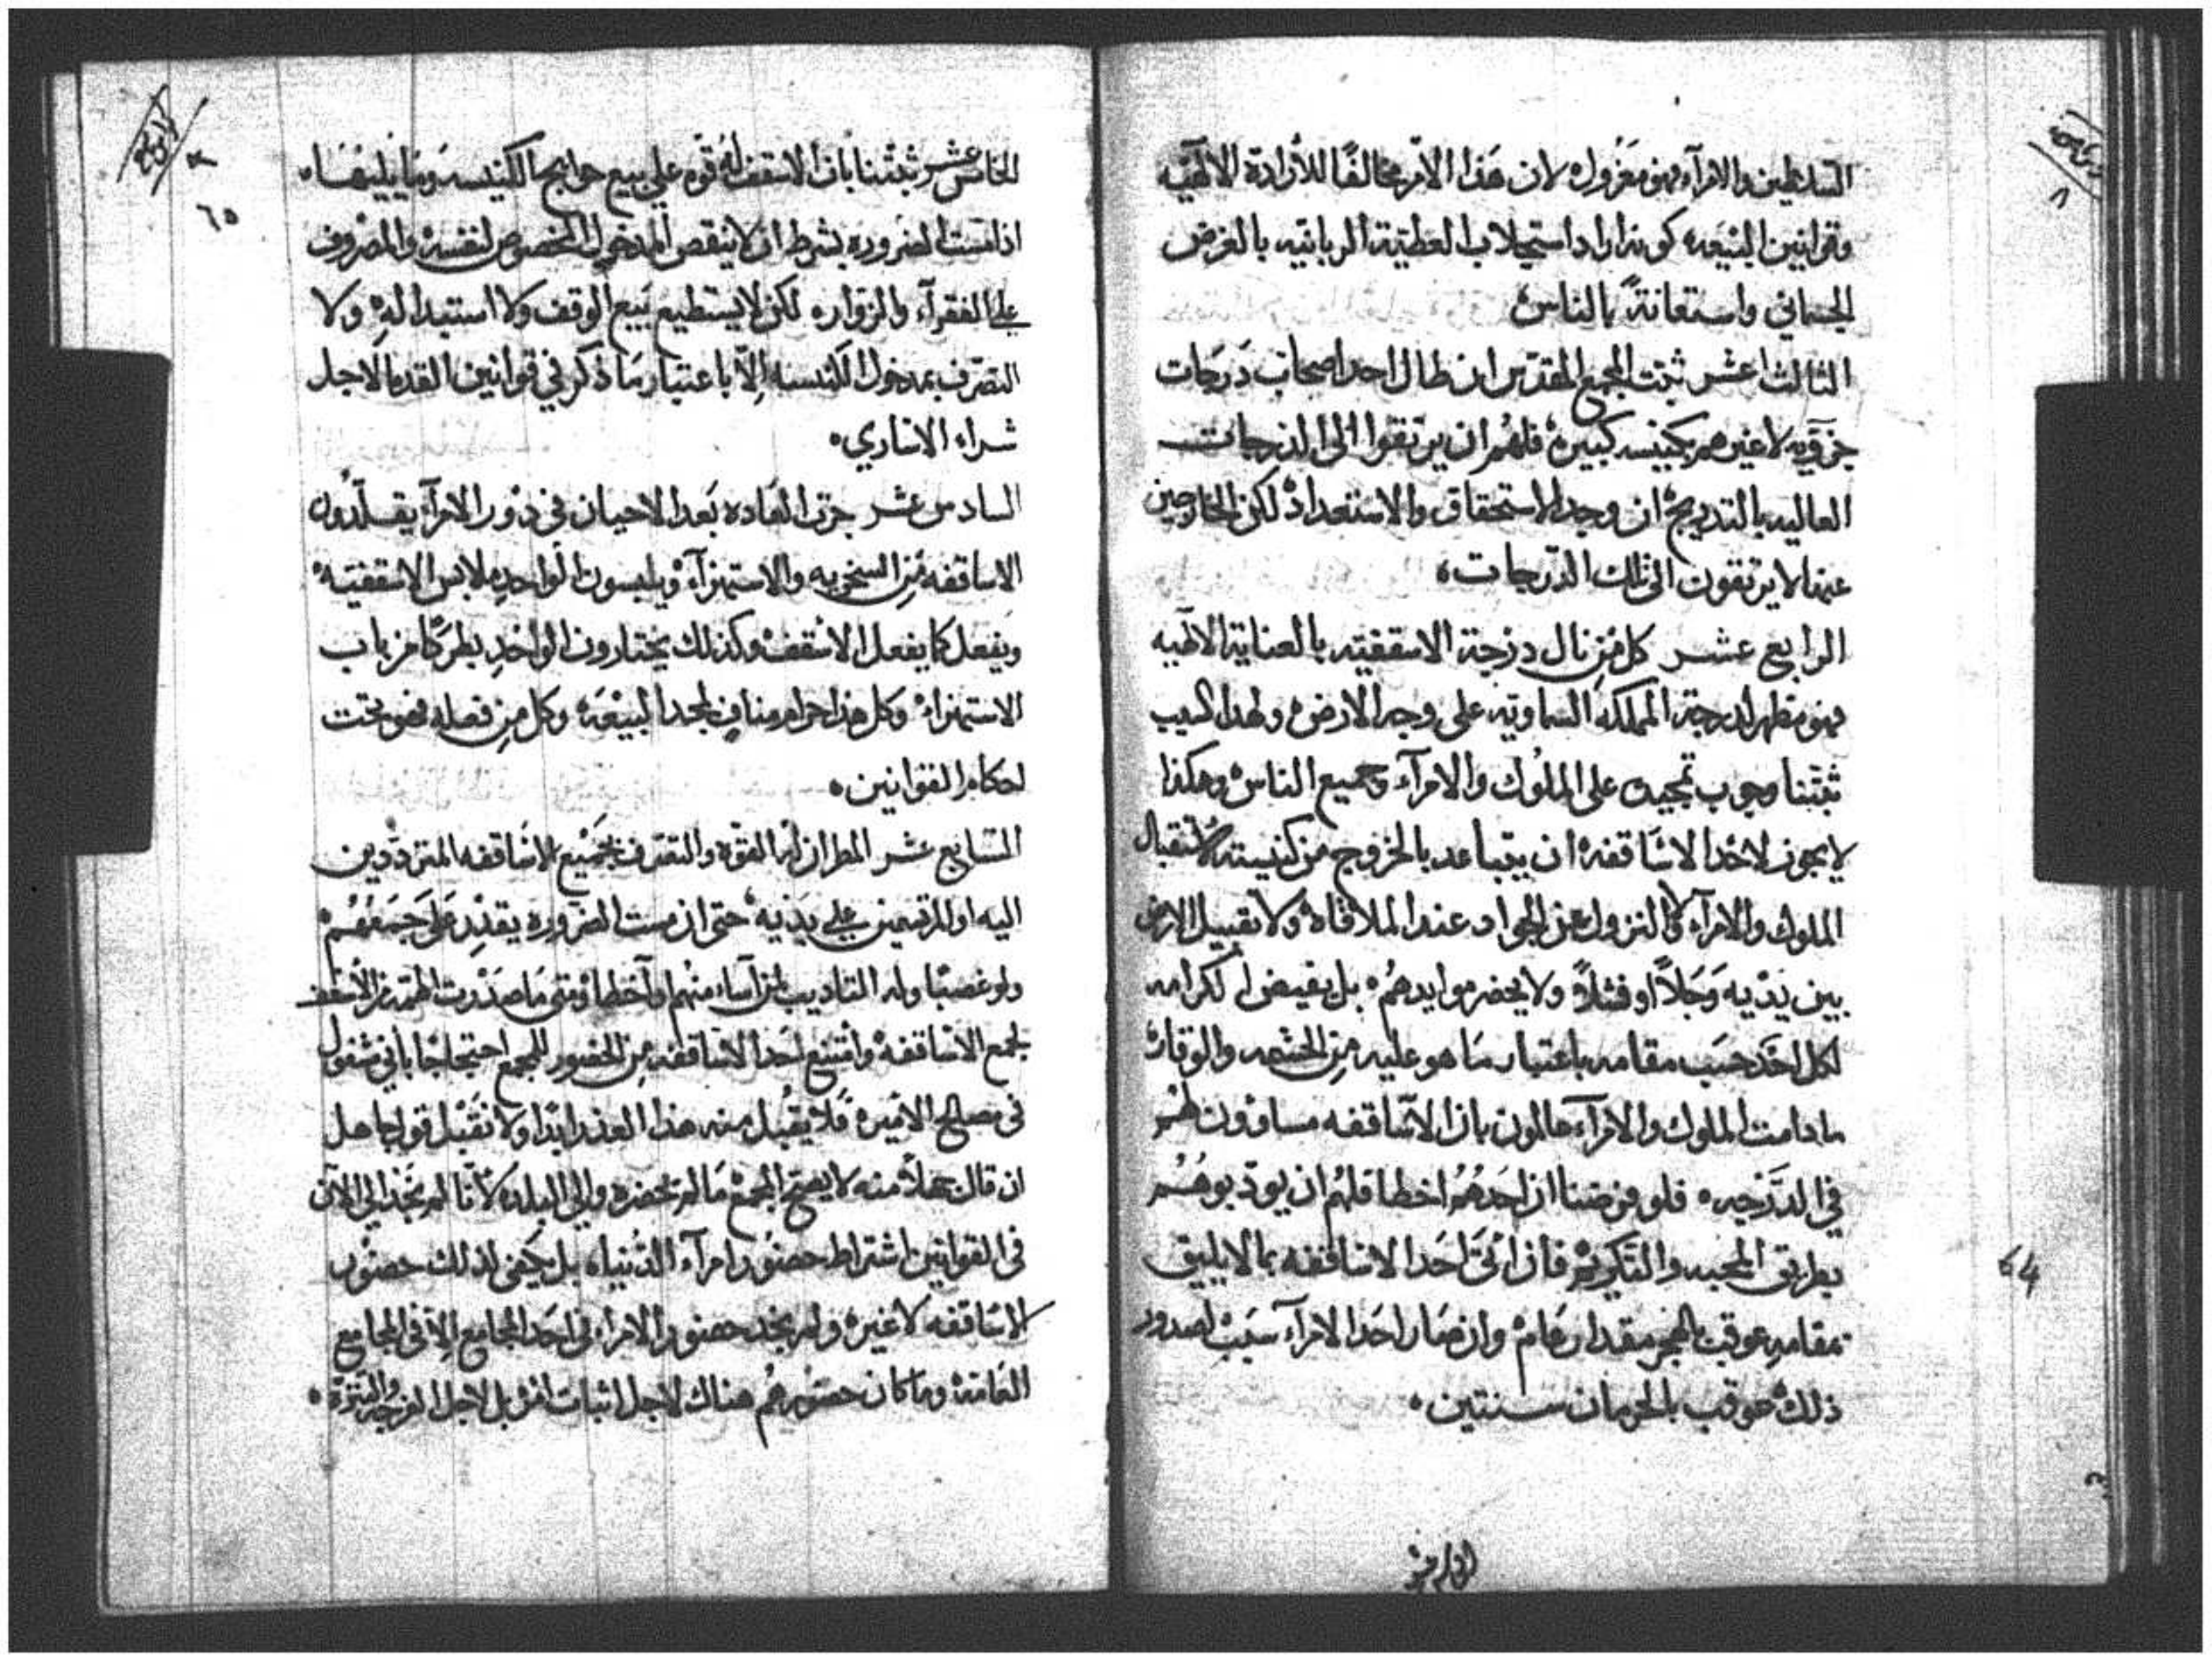 السلاطين والامرآء فهو معزول لان هَذا الامر مخالفًا للأرادة الالآهيه
وقوانين البيعَه كونه اراد استجلاب العطيّة الربانيه بالغرض
الجسماني واستعانةً بالناس
الثالث عشر ثبّت المجمع المقدّس ان طال احد اصحاب دَرَجات
جزؤيه لا غير همر بكنيسه كبيرهْ فلهُم ان يرتقوا الى الدرجات
العاليه بالتدريج ان وجد الاستحقاق والاستعداد لكن الخارجين
عنها لا يرتقون الى تلك الدّرجات،
الرابع عشر كل مَن نال درجة الاسقفيّه بالعناية الالهيه
فهو مظهر لدرجة المملكه السماويّه على وجه الارض ولهدا السبب
ثبّتنا وجوب تمجيده على الملُوك والامرآء وجميع الناس وهكذا
لا يجوز لاحْد الاسَاقفه ان يتباعد بالخروج من كنيسته لاستقبال
الملوك والامرآء ولا النزول عن الجواد عند الملاقاه ولا تقبيل الارض
بين يدَيه وَجَلاً او فشلاً ولا يحضر موايدهُم بل يقيض الكرامه
لكل احَد حسَب مقامه باعتبار مَا هو عليه مِن الحشمه والوقار
ما دامت الملوك والامرآء عالمون بان الاسَاقفه مساوون لهُم
في الدَّرجه ٠ فلو فرضنا ان احَدهُم اخطا فلهُم ان يودّبوهُم
بطريق المحبه والتكريم فان اتَى احَد الاساقفه بما لا يليق
بمقامه عوقب بالهجر مقدار عَام وان صَار احَد الامرآء سبَب لصدور
ذلك عوقب بالحرمان سنتين ٠
64
الخامس عشر
٦٥
الخامس عشر ثبّتنا بان الاسقف لهُ قوه على بيع حوايج الكنيسه ومَا يليهَا ٠
اذا مست الضروره بشرط ان لا ينقص المدخول المخصوص لنفسه والمصروف
على الفقرآء والزوار لكن لا يستطيع بَيع الوقف ولا استبدالهِ ولا
التصرّف بمدخول الكنيسه إلاّ باعتبار مَا ذكر في قوانين القدما لاجل
شراء الاساري ٠
السادس عشر جرت العَاده بَعد الاحيان في دَور الامرآء يقلّدُون
الاساقفه مَن السخريه والاستهزآء ويلبسون الواحد ملابس الاسقفيّه
ويفعل كما يفعل الاسْقف وكذلك يختارون الواحدِ بطركًا من باب
الاستهزاء وكل هذا حرام منافٍ لمجد البيْعَه وكل مِن فعله فهو تحت
احكام القوانين ٠
السَّابع عشر المطران له القوه والتصرف بجَميْع الاسَاقفه المتردّدين
اليه او المرتسمين على يدَيه حتى ان مست الضروره يقدّر عَلى جَمعهُم
ولو غصبًا وله التاديب لمن آساء منهُم او آخطا ومتى مَا صدرت الهمّه من الأسقف
لجمع الاسَاقفهْ وامتنع احَد الاسَاقفه مِن الحضور للمجمع احتجاجًا باني مشغول
في مصالح الامير فَلا يقُبل منه هذا العذر ابدًا ولا نقَبْل قول جاهل
ان قال جهلاً منه لا يصح المجمعْ مَا لم تحضره والي البلده لأنّا لم نجَد الي الآن
في القوانين اشتراط حضوُر امرآء الدُنيا ٠ بل يكفى لذلك حضوُر
الاسَاقفه لا غير ولم نجد حضور الامراء في احَد المجامع إلاّ في المجامع
العَامهْ وما كان حضورهُم هناك لاجل اثبات امر بل لاجل الفرجه والنزه ٠